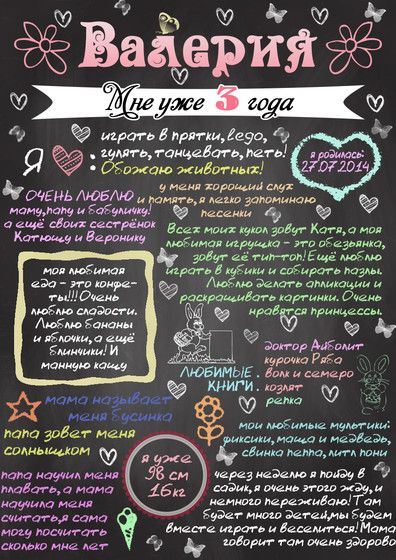 Валерия
Мне уже 3 года
Я
играть в прятки, lego,
гулять, танцевать, петь!
Обожаю животных!
я родилась:
27.07.2014
ОЧЕНЬ ЛЮБЛЮ
маму, папу и бабуличку!
а ещё своих сестрёнок
Катющу и Веронику
у меня хороший слух
и память, я легко запоминаю
песенки
Всех моих кукол зовут Катя, а моя
любимая игрушка - это обезьянка,
зовут её тип-топ! Ещё люблю
играть в кубики и собирать пазлы.
Люблю делать аппликации и
раскрашивать картинки. Очень
нравятся принцессы.
моя любимая
еда - это конфе-
ты!!! Очень
люблю сладости.
Люблю бананы
и яблочки, а ещё
блинчики! И
манную кашу
ЛЮБИМЫЕ
КНИГИ:
доктор Айболит
курочка Ряба
волк и семеро
козлят
репка
мама называет
меня бусинка
папа зовет меня
солнышком
мои любимые мультики:
фиксики, маша и медведь,
свинка пеппа, литл пони
я уже
98 см
16кг
папа научил меня
плавать, а мама
научила меня
считать, я сама
могу посчитать
сколько мне лет
через неделю я пойду в
садик, я очень этого жду, и
немного переживаю! Там
будет много детей, мы будем
вместе играть и веселиться! Мама
говорит там очень здорово